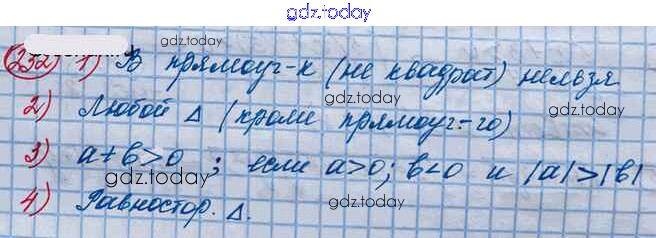 gdz.today
gdz.today
232) 1) В прямоуг-к (не квадрат) нельзя
gdz.today
2) Любой Δ (кроме прямоуг-го)
gdz.today
3) a+b>0 ; если a>0; b<0 и |a|>|b|
gdz.today
4) Равностор. Δ.
gdz.today